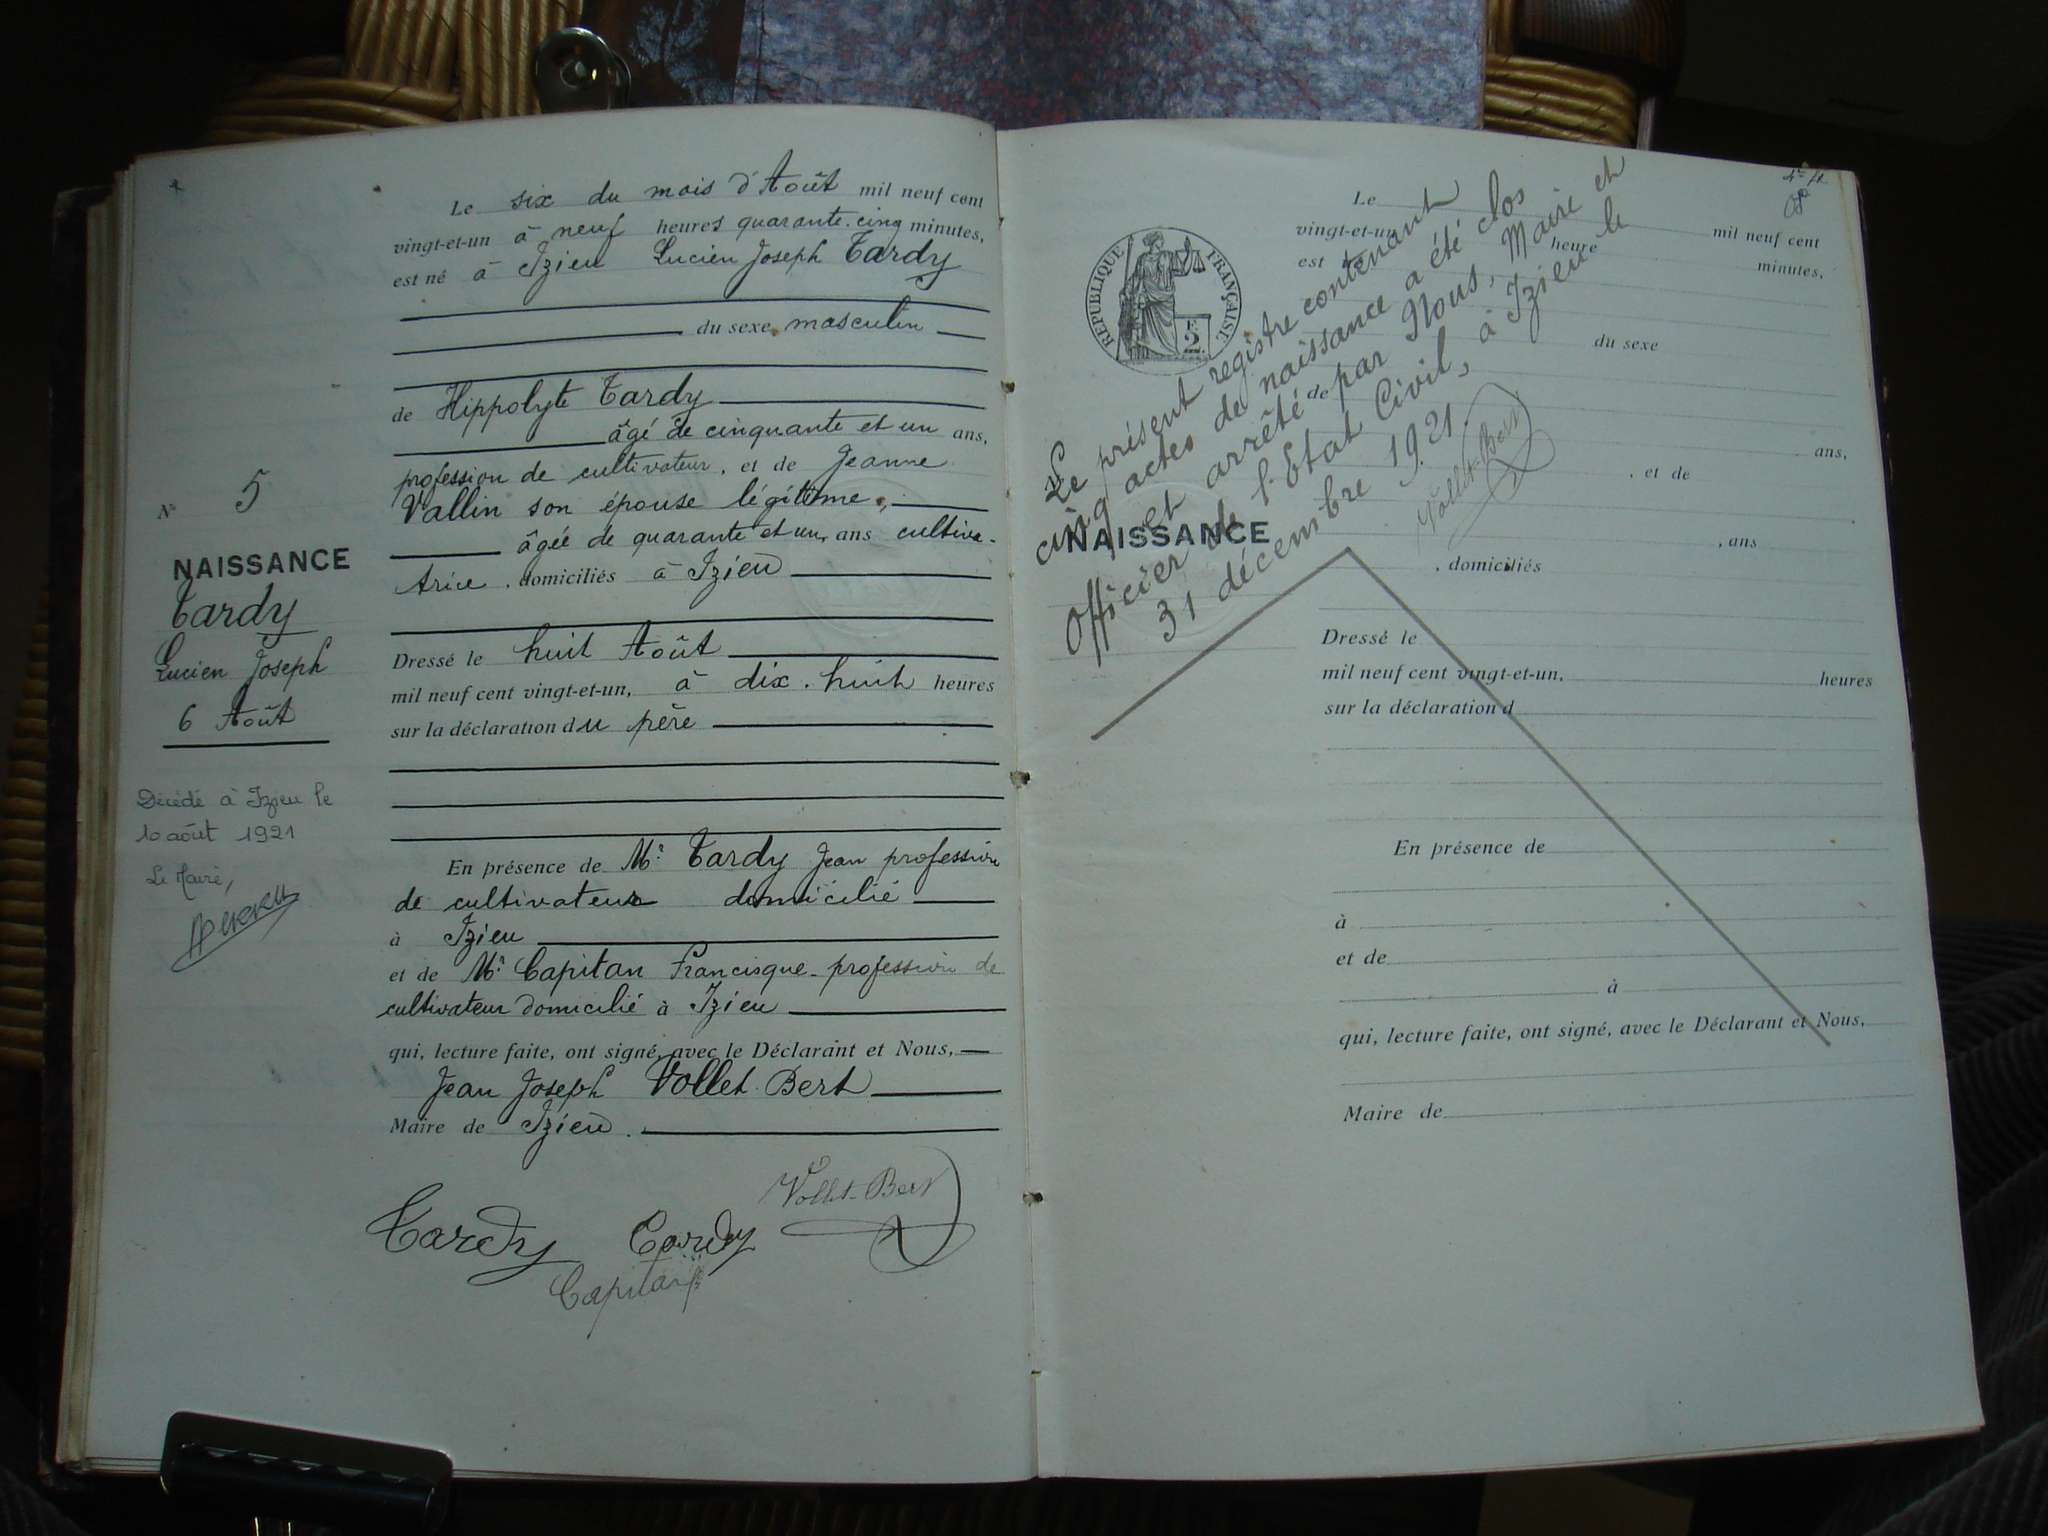 N° 5
NAISSANCE
Tardy
Lucien Joseph
6 Août
Décédé à Izieu le
10 août 1921
Le Maire,
Le six du mois d'Août mil neuf cent
vingt-et-un à neuf heures quarante-cinq minutes,
est né à Izieu Lucien Joseph Tardy
du sexe masculin
de Hippolyte Tardy
âgé de cinquante et un ans,
profession de cultivateur, et de Jeanne
Vallin son épouse légitime,
âgée de quarante et un, ans cultiva-
trice, domiciliés à Izieu
Dressé le huit Août
mil neuf cent vingt-et-un, à dix-huit heures
sur la déclaration du père
En présence de Mr Tardy Jean profession
de cultivateur domicilié
à Izieu
et de Mr Capitan Francisque profession de
cultivateur domicilié à Izieu
qui, lecture faite, ont signé, avec le Déclarant et Nous,
Jean Joseph Vollet-Bert
Maire de Izieu.
Vollet-Bert
Tardy Tardy
Capitan
RÉPUBLIQUE FRANÇAISE
2
Le présent registre contenant
cinq actes de naissance a été clos
et arrêté par Nous, Maire et
Officier de l'Etat Civil, à Izieu le
31 décembre 1921.
Vollet-Bert
NAISSANCE
Le
mil neuf cent
vingt-et-un
heure
minutes,
est
du sexe
de
ans,
, et de
, ans
, domiciliés
Dressé le
mil neuf cent vingt-et-un, heures
sur la déclaration d
En présence de
à
et de
à
qui, lecture faite, ont signé, avec le Déclarant et Nous,
Maire de